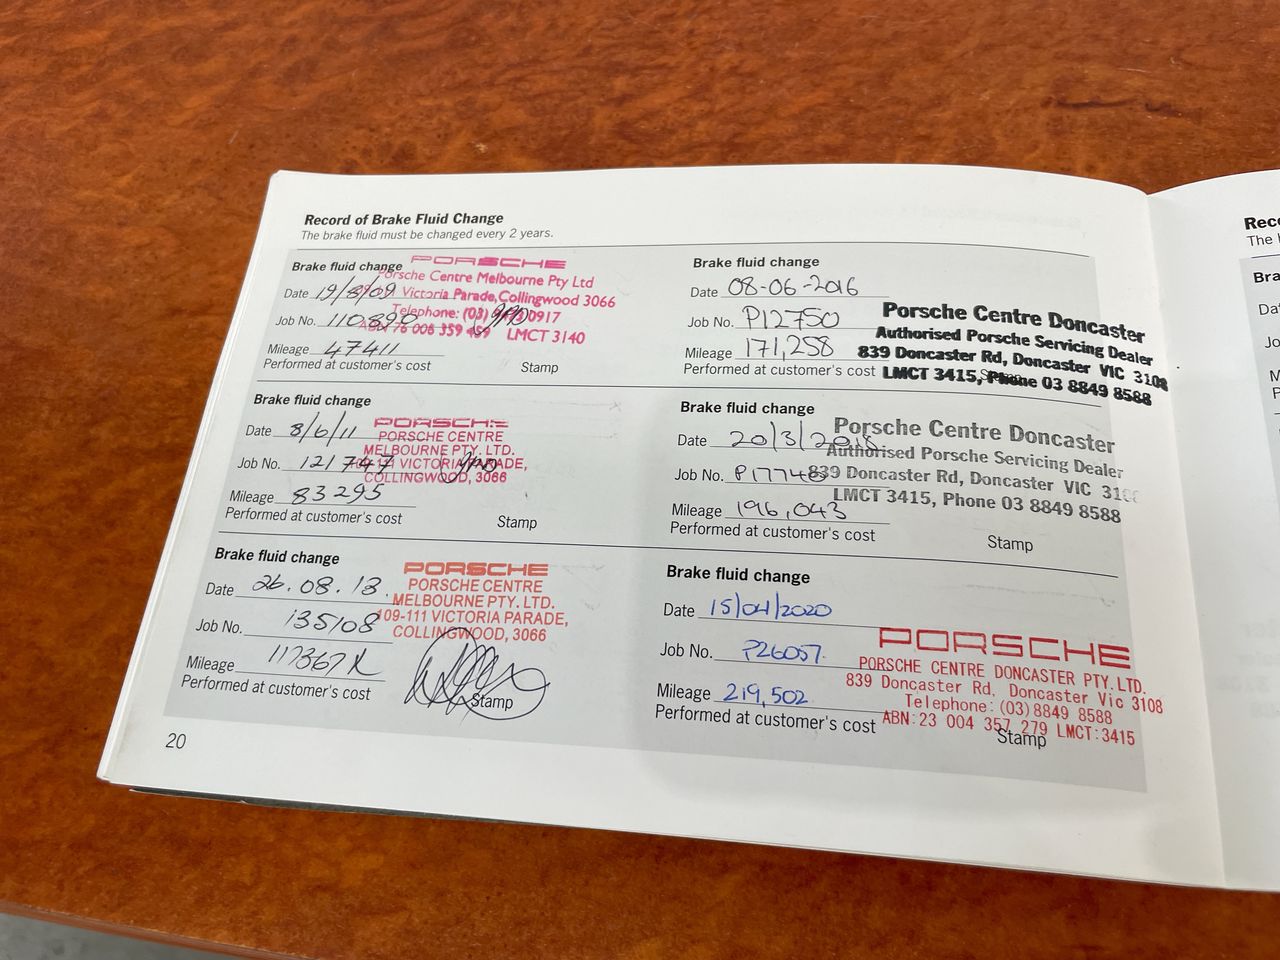 Record of Brake Fluid Change
The brake fluid must be changed every 2 years.
Brake fluid change
PORSCHE
Porsche Centre Melbourne Pty Ltd
Date 19/8/09
Victoria Parade, Collingwood 3066
Telephone: (03) 0917
Job No. 110890
76 006 359 LMCT 3140
Mileage 47411
Performed at customer's cost Stamp
Brake fluid change
PORSCHE
Date 8/6/11
PORSCHE CENTRE
MELBOURNE PTY. LTD.
Job No. 121747
109-111 VICTORIA PARADE,
COLLINGWOOD, 3066
Mileage 83295
Performed at customer's cost Stamp
Brake fluid change
PORSCHE
Date 26.08.13.
PORSCHE CENTRE
MELBOURNE PTY. LTD.
Job No. 135108
109-111 VICTORIA PARADE,
COLLINGWOOD, 3066
Mileage 117367K
Performed at customer's cost Stamp
20
Brake fluid change
Date 08-06-2016
Job No. P12750
Porsche Centre Doncaster
Authorised Porsche Servicing Dealer
Mileage 171,258
839 Doncaster Rd, Doncaster VIC 3108
Performed at customer's cost
LMCT 3415, Phone 03 8849 8588
Brake fluid change
Date 20/3/2018
Porsche Centre Doncaster
Authorised Porsche Servicing Dealer
Job No. P17748
839 Doncaster Rd, Doncaster VIC 3108
LMCT 3415, Phone 03 8849 8588
Mileage 196,043
Performed at customer's cost Stamp
Brake fluid change
Date 15/04/2020
PORSCHE
Job No. P26057.
PORSCHE CENTRE DONCASTER PTY. LTD.
839 Doncaster Rd, Doncaster Vic 3108
Mileage 219,502
Telephone: (03) 8849 8588
Performed at customer's cost
ABN: 23 004 357 279 LMCT: 3415
Stamp